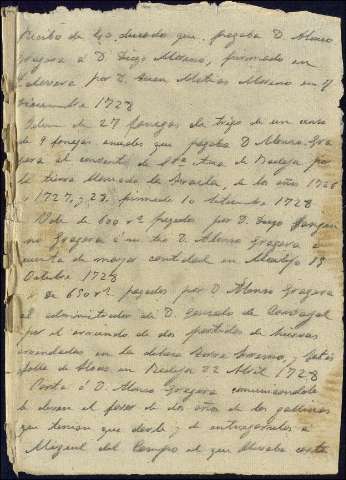 Recibo de 40 ducados que pagaba D. Alonso
Gragera á D. Diego Moreno, firmado en
por D. Juan Matias Moreno en 7
Diciembre 1728
Idem de 27 fanegas de trigo de un censo
de 9 fanegas anuales que pagaba D. Alonso Gra
gera al convento de Sta Ana de Badajoz por
la tierra llamada de de los años 1726
1727, y 28. firmado 10 Setiembre 1728
Idem de 600 rs pagados por D. Diego
no Gragera á su tio D. Alonso Gragera á
cuenta de mayor cantidad en Montijo 13
Octubre 1728
Id de 650 rs pagados por D Alonso Gragera
al administrador de D. Gonzalo de Carvajal
por el arriendo de dos partidos de huevas
arrendadas en la dehesa y
en Badajoz 22 Abril 1728
Carta á D. Alonso Gragera comunicandole
le hagan el favor de los años de las gallinas
que tenian que darle y de entregarselas á
Miguel del Campo el que llevaba carta